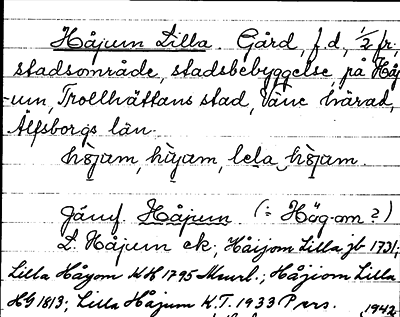 Håjum Lilla. Gård, f.d., 1/2 fr.,
stadsområde, stadsbebyggelse på Håj
-um, Trollhättans stad, Väne härad,
Älfsborgs län.
højam, hùjam, lela højam.
Jämf. Håjum. (: Hög-om ?)
L. Håjum ek; Håijom Lilla jb 1731;
Lilla Håyom KH 1795 Mcurl.; Håjiom Lilla
HG 1813; Lilla Håjum K.T. 1933 P vrs.
1942